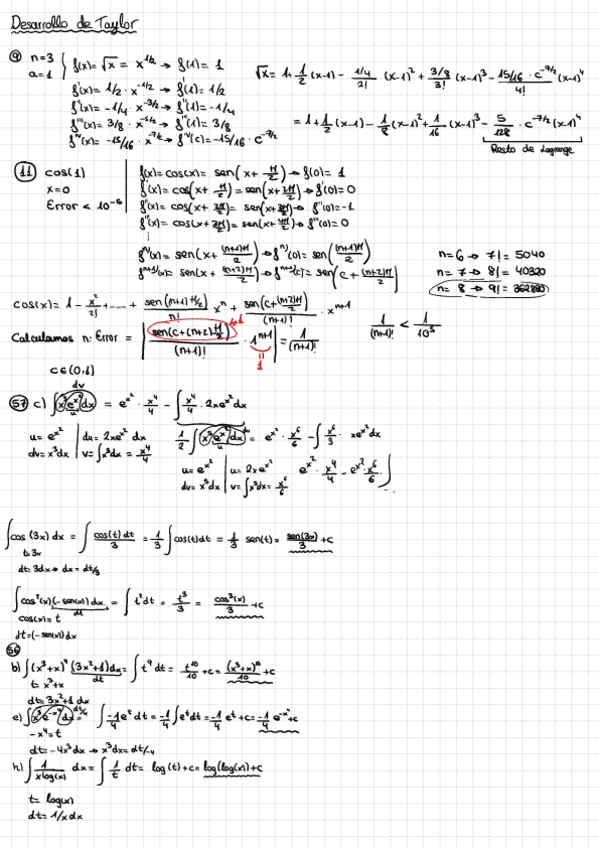 Desarrollo de Taylor
⑨ n=3
a=1
f(x)= √x = x^1/2 → f(1)= 1
f'(x)= 1/2 · x^-1/2 → f'(1)= 1/2
f''(x)= -1/4 x^-3/2 → f''(1)= -1/4
f'''(x)= 3/8 x^-5/2 → f'''(1)= 3/8
f''''(x)= -15/16 x^-7/2 → f''''(c)= -15/16 · c^-7/2
√x = 1 + 1/2 (x-1) - (1/4)/2! (x-1)² + (3/8)/3! (x-1)³ - (15/16 · c^-7/2 (x-1)⁴)/4!
= 1 + 1/2 (x-1) - 1/8 (x-1)² + 1/16 (x-1)³ - 5/128 · c^-7/2 (x-1)⁴
Resto de Lagrange
⑪ cos(1)
x=0
Error < 10^-5
f(x)= cos(x)= sen(x+ π/2) → f(0)= 1
f'(x)= cos(x+ π/2) = sen(x+ 2π/2) → f'(0)= 0
f''(x)= cos(x+ 2π/2)= sen(x+ 3π/2) → f''(0)=-1
f'''(x)= cos(x+ 3π/2)= sen(x+ 4π/2) → f'''(0)=0
⋮
f^n)(x)= sen(x+ (n+1)π/2) → f^n)(0)= sen((n+1)π/2)
f^n+1)(x)= sen(x+ (n+2)π/2) → f^n+1)(c)= sen(c+ (n+2)π/2)
n=6 → 7!= 5040
n=7 → 8!= 40320
n=8 → 9!= 362880
cos(x)= 1 - x²/2! + ---- + sen(n+1)π/2 / n! x^n + sen(c+(n+2)π/2) / (n+1)! · x^n+1
Calculamos n: Error = | sen(c+(n+2)π/2) / (n+1)! · 1^n+1 | = 1/(n+1)!
≤1
1
1/(n+1)! < 1/10^5
c∈(0,1)
57 c) ∫ x³ e^x² dx = e^x² · x⁴/4 - ∫ x⁴/4 · 2x e^x² dx
u= e^x² | du= 2x e^x² dx
dv= x³dx | v= ∫x³dx = x⁴/4
1/2 ∫ x⁵ e^x² dx = e^x² · x⁶/6 - ∫ x⁶/3 · x e^x² dx
u= e^x² | u= 2x e^x²
dv= x⁵dx | v= ∫x⁵dx= x⁶/6
e^x² · x⁴/4 - e^x² · x⁶/6
∫cos (3x) dx = ∫ cos(t) dt / 3 = 1/3 ∫cos(t)dt = 1/3 sen(t)= sen(3x)/3 +c
t=3x
dt= 3dx → dx = dt/3
∫cos²(x)(-sen(x)) dx = ∫ t² dt = t³/3 = cos³(x)/3 +c
cos(x)= t
dt=(-sen(x))dx
56
b) ∫(x³+x)⁹ (3x²+1)dx = ∫ t⁹ dt = t¹⁰/10 +c = (x³+x)¹⁰/10 +c
t= x³+x
dt= 3x²+1 dx
e) ∫ x³ e^-x⁴ dx = ∫ -1/4 e^t dt = -1/4 ∫e^t dt = -1/4 e^t +c = -1/4 e^-x⁴ +c
-x⁴=t
dt= -4x³dx → x³dx= dt/-4
h) ∫ 1/(x log(x)) dx = ∫ 1/t dt= log(t)+c= log(log(x))+c
t= log(x)
dt= 1/x dx